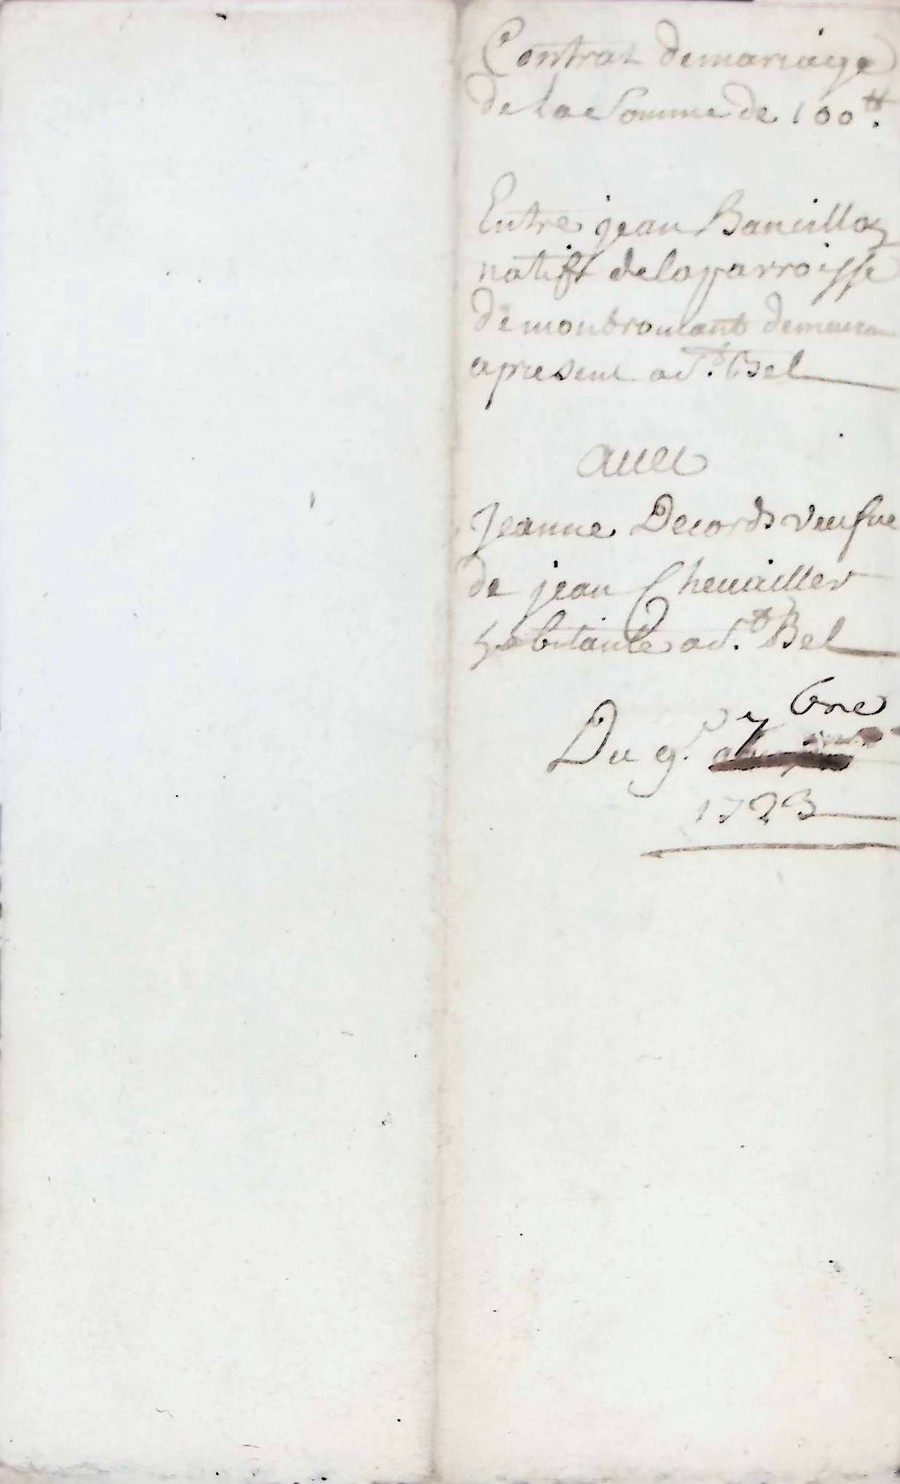 Contrat demariage
de la Somme de 100tt.
Entre jean Banuilloz
natifs delaparroisse
de montbroutant demeura
apresent ad.t Bel
auec
Jeanne Decords veufue
de jean Cheuaillier
habitante ad.t Bel
Du 9.e 7bre
1723